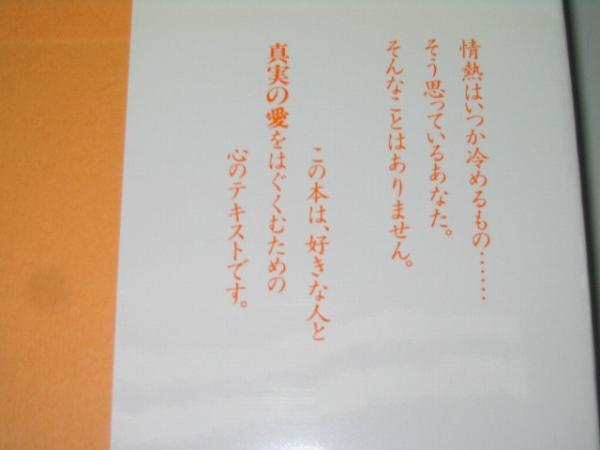 情熱はいつか冷めるもの……
そう思っているあなた。
そんなことはありません。
この本は、好きな人と
真実の愛をはぐくむための
心のテキストです。